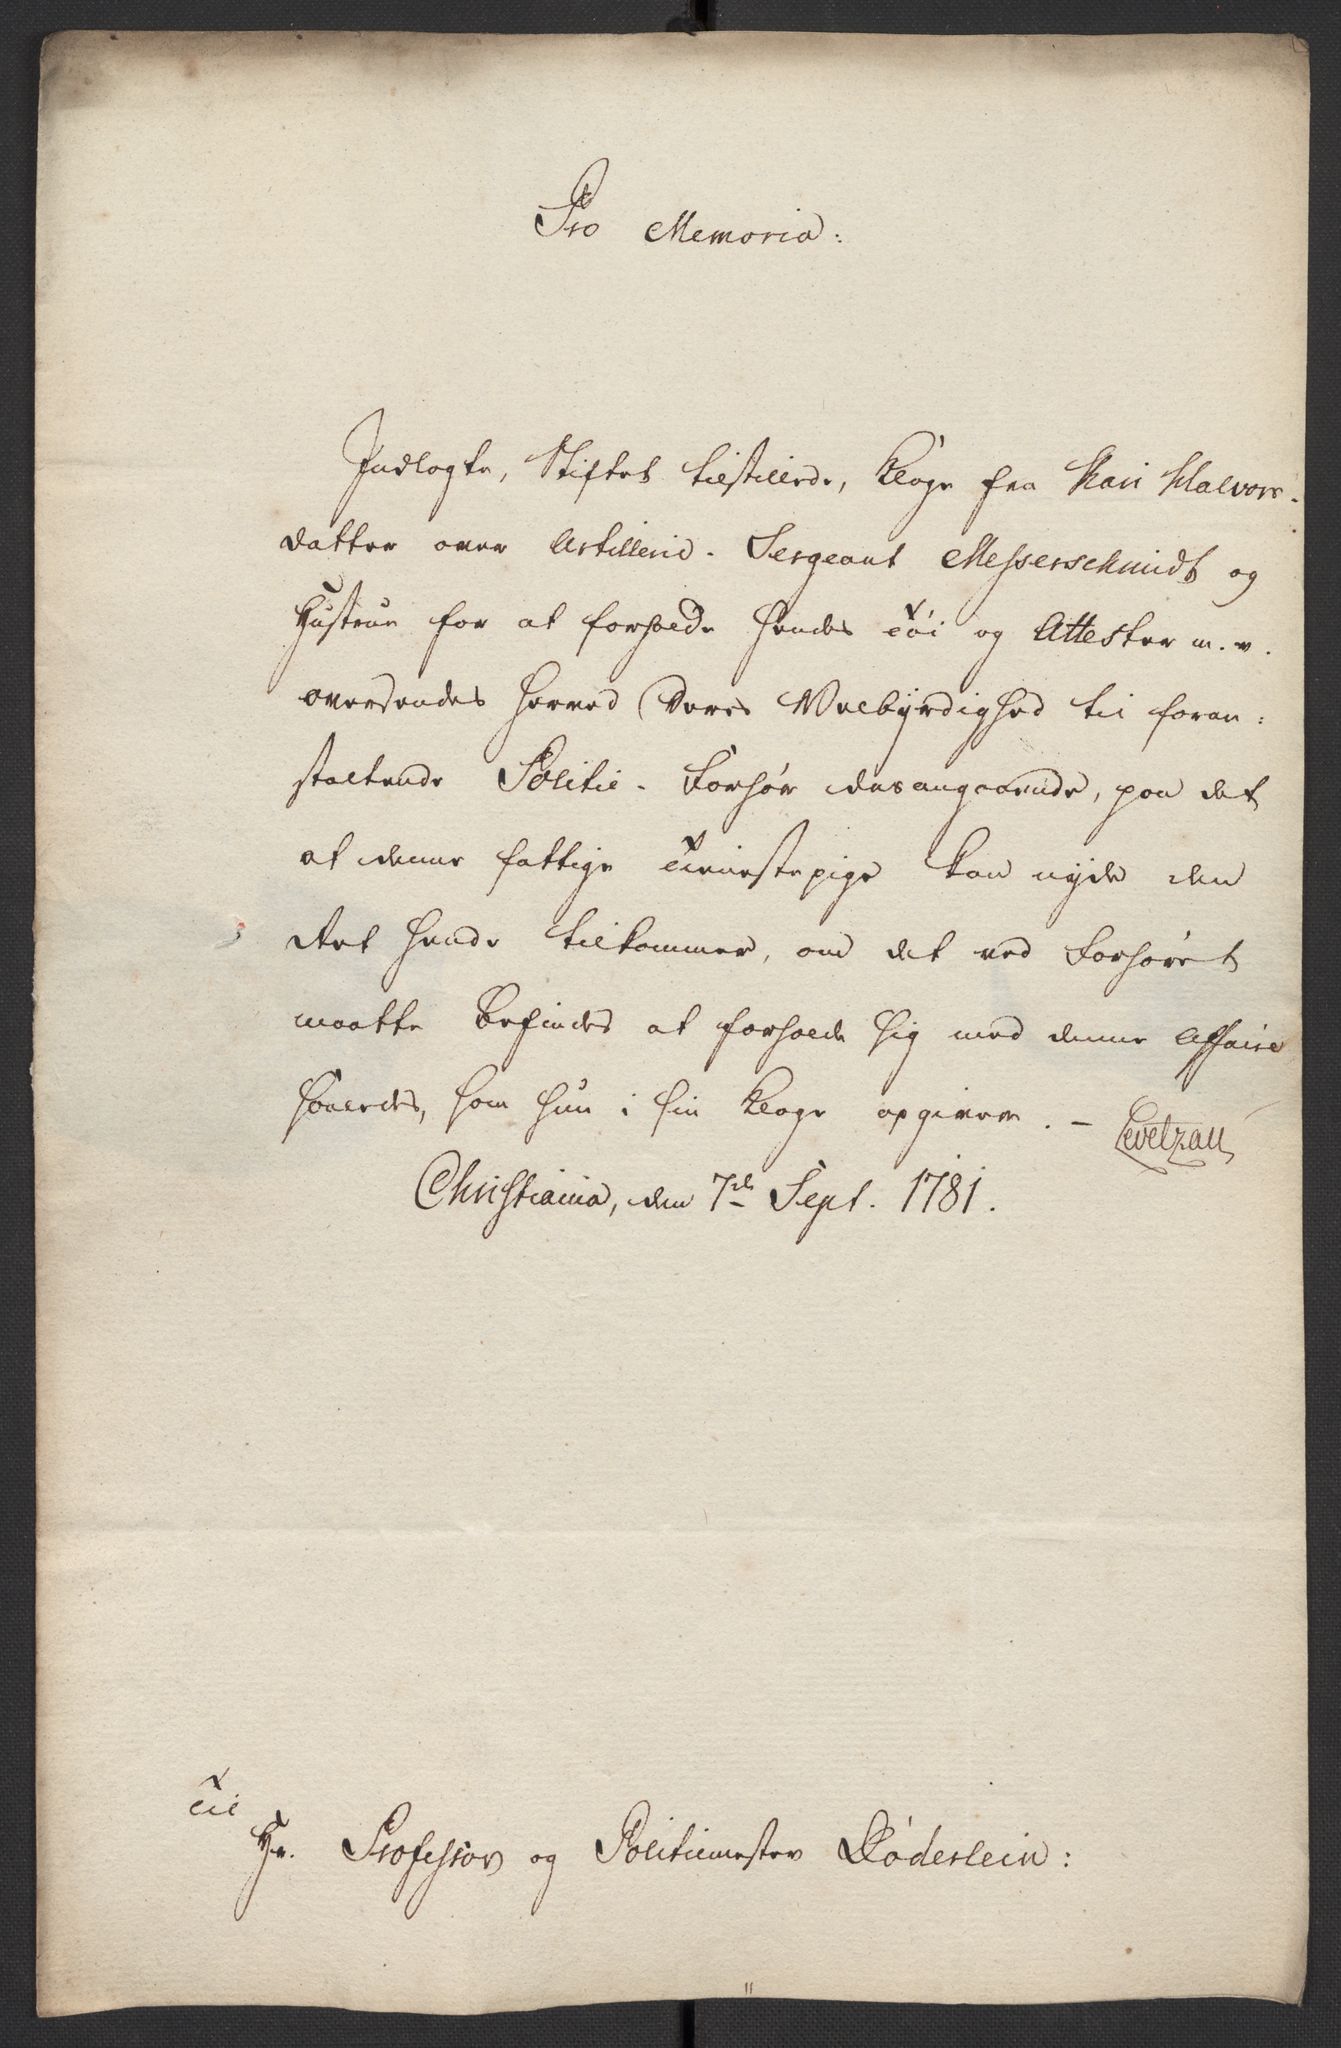 Pro Memoria:
Indlagte, Stiftet tilstillede, Klage fra Kari Halvors-
datter over Artillerie-Sergeant Messerschmidt og
Hustrue for at forholde hendes Tøi og Attester m. v.
oversendes herved Deres Velbyrdighed til foran:
staltende Politie-Forhør desangaaende, paa det
at denne fattige Tienestepige kan nyde den
Ret hende tilkommer, om det ved Forhøret
maatte befindes at forholde sig med denne Affaire
saaledes, som hun i sin Klage opgiver. -
Levetzau
Christiania, den 7de Sept. 1781.
Til
Hr. Professor og Politiemester Døderlein: